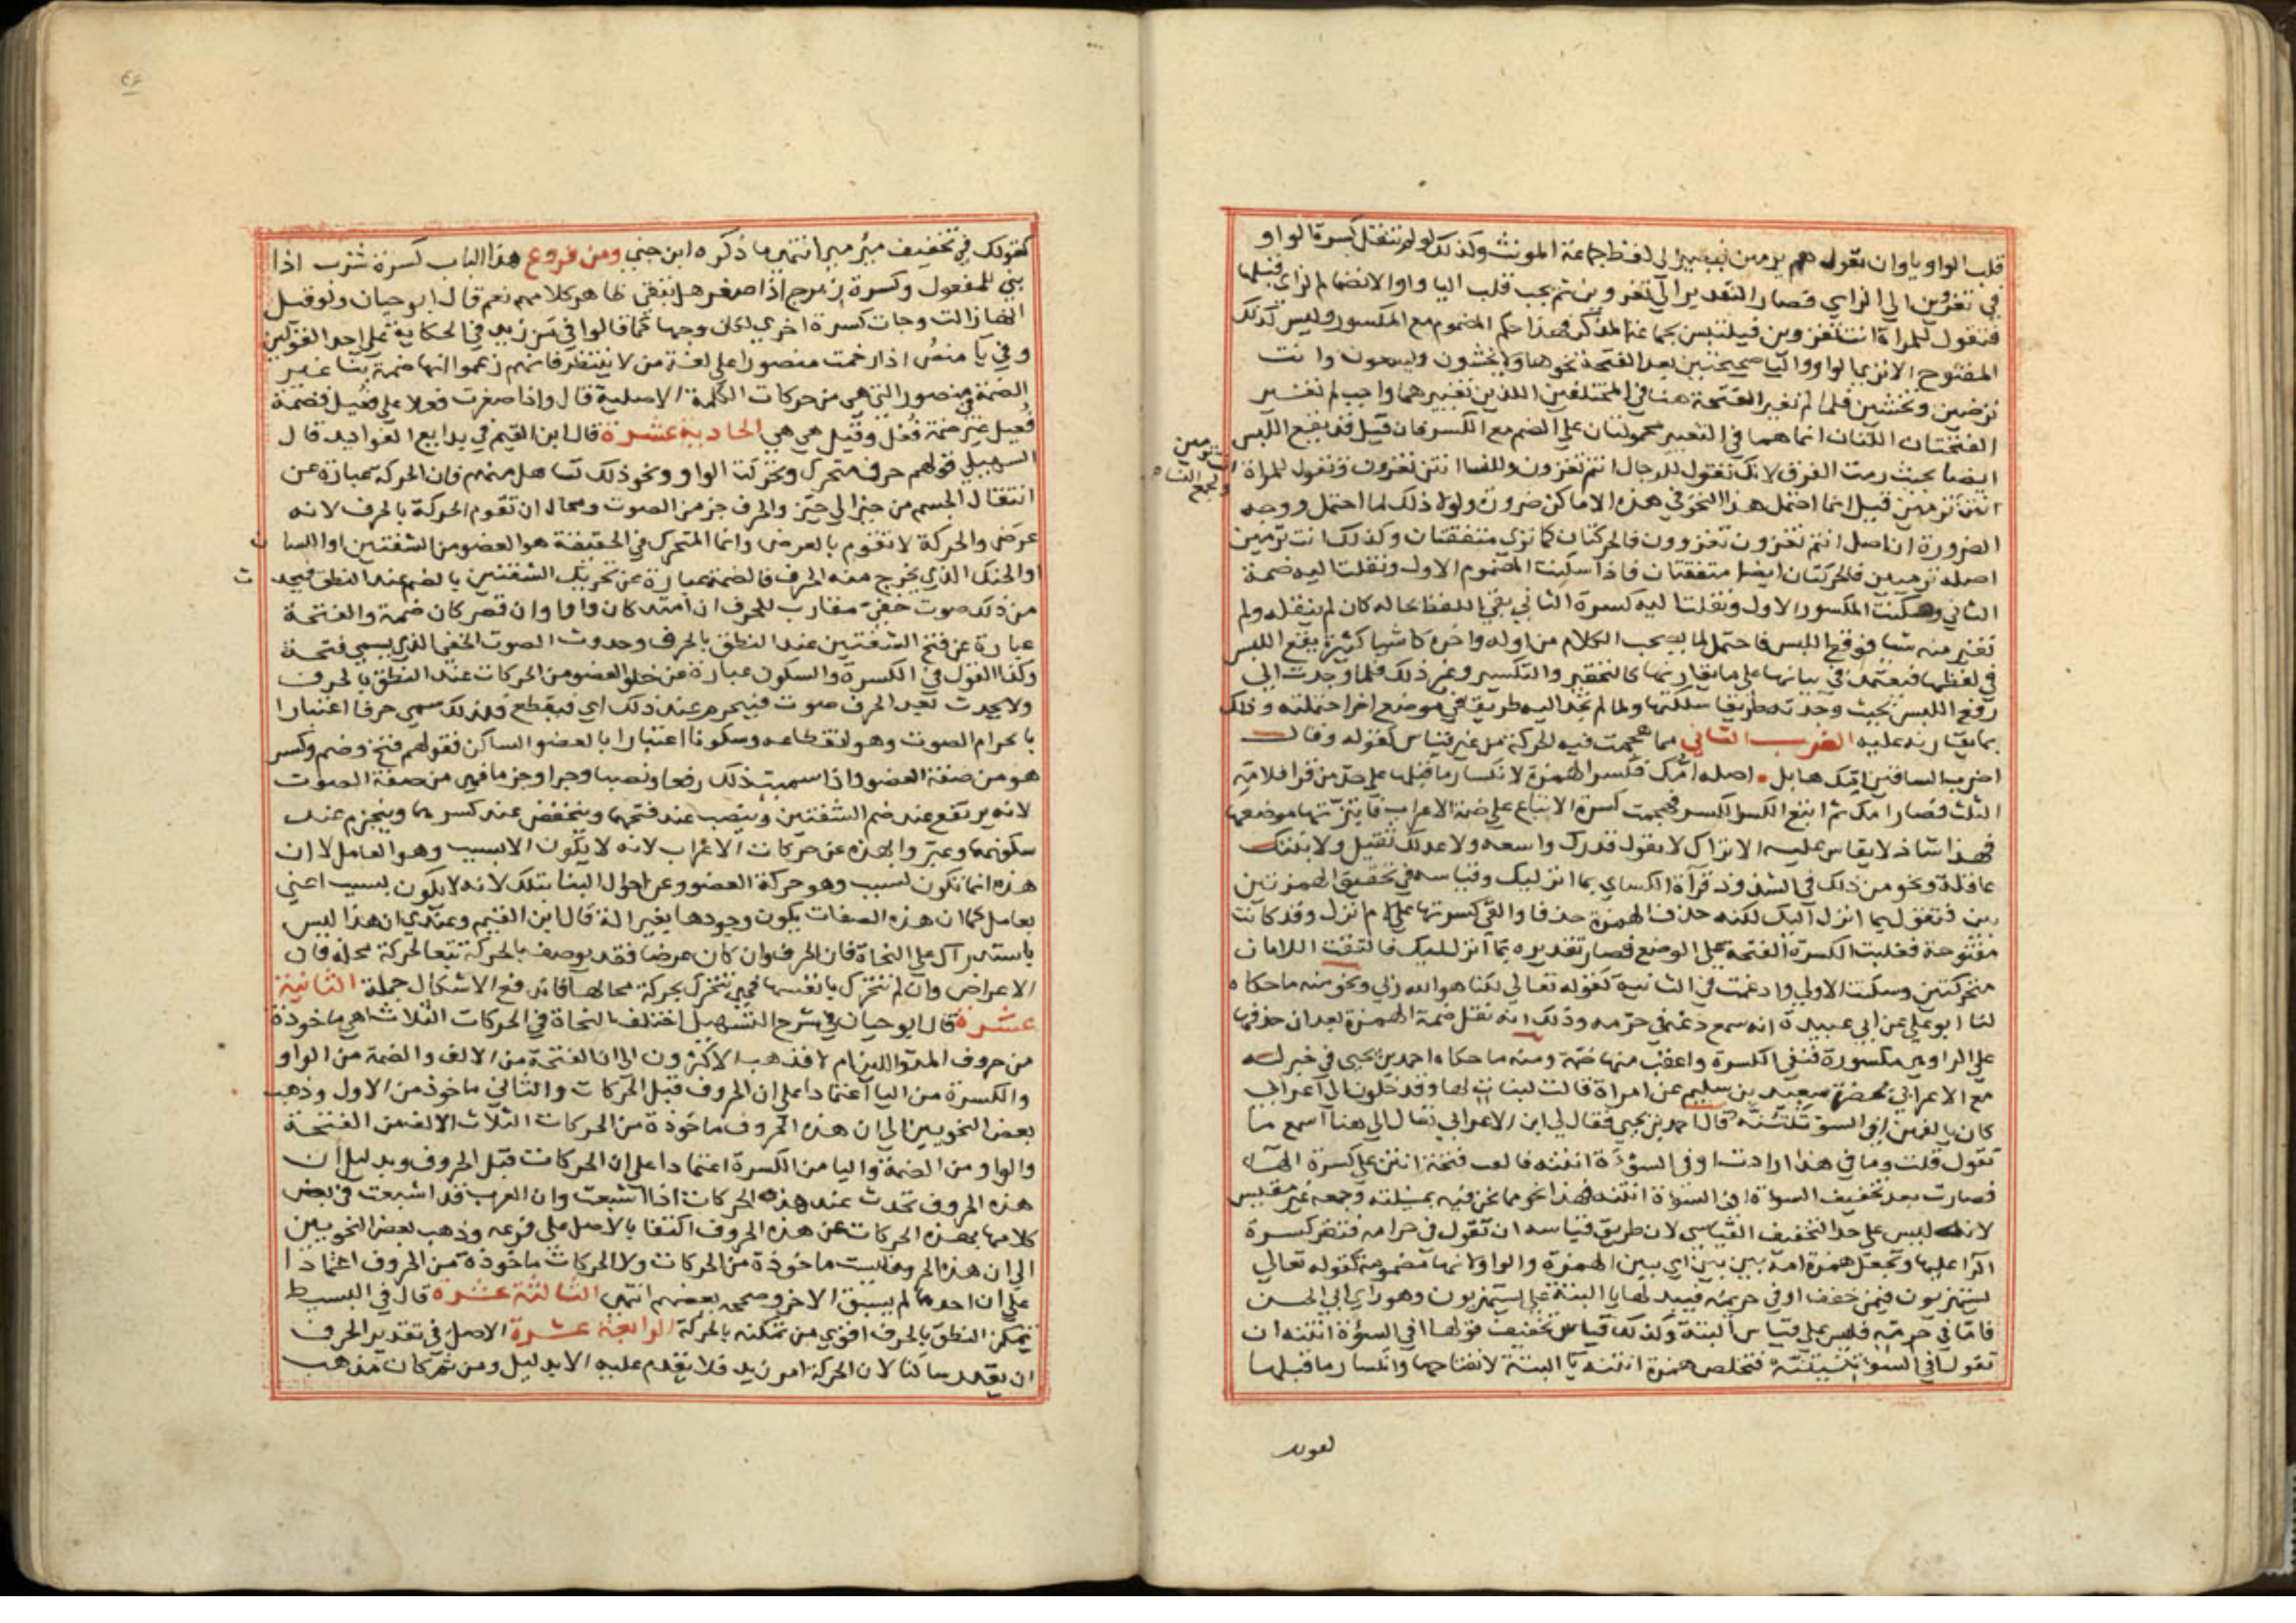 قلب الواو ياوان تقول هم يرمين فيصير الى لفظ جماعة المونث وكذلك لولم تنقل كسرة الواو
في تغزوين الي الزاي فصار التقدير الى تغزوين ثم يجب قلب اليا واوا لانضمام الزاي قبلها
فتقول للمراة انت تغزون فيلتبس بجماعة المذكر فهذا حكم المضموم مع المكسور وليس كذلك
المفتوح الا ترى الواو واليا صحيحتين بعد الفتحة نحو هما ولا يخشون ويسعون وانت
ترضين وتخشين فلما لم تغير الفتحة هنا في المختلفين اللذين تغييرهما واجب لم تغير
الفتحتان اللتان انما هما في التغيير محمولتان على الضم مع الكسر فان قيل قد يقع اللبس
ايضا بحيث رمت الفرق لانك تقول للرجال انتم تغزون وللنسا انتن تغزون وتقول للمراة
انت ترمين
ولجمع النسا
انتن ترمين قيل انما احتمل هذا النحو في هذه الاماكن ضرورة ولولا ذلك لما احتمل ووجه
الضرورة ان اصل انتم تغزون تغزوون فالحركتان كما ترى متفقتان وكذلك انت ترمين
اصله ترميين فالحركتان ايضا متفقتان فاذا اسكنت المضموم الاول ونقلت اليه ضمة
الثاني وسكنت المكسور الاول ونقلت اليه كسرة الثاني بقي اللفظ بحاله كان لم ينقله ولم
تغير منه شيا فوقع اللبس فاحتمل لما يصحب الكلام من اوله واخره كاشيا كثيرة يقع اللبس
في لفظها فيعتمد في بيانها على ما يقارنها كالتحقير والتكسير وغير ذلك فلما وجدت الى
رفع اللبس بحيث وجدته طريقا سلكتها ولما لم تجد اليه طريقا في موضع اخر احتملته ودللت
بما يقارنه عليه الضرب الثاني مما هجمت فيه الحركة من غير قياس كقوله وقال
اضرب الساقين امك هابل اصله امك فكسر الهمزة لانكسار ما قبلها على حد من قرا فلامه
الثلث فصار امك ثم اتبع الكسر الكسر فهجمت كسرة الاتباع على ضمة الاعراب فابتزتها موضعها
فهذا شاذ لا يقاس عليه الا تراك لا تقول قدرك واسعه ولا عدلك ثقيل ولا بنتك
عاقلة ونحو من ذلك في الشذوذ قراة الكساي بما انزليك وقياسه في تخفيف الهمزة بين
بين فتقول بما انزل اليك لكنه حذف الهمزة حذفا والقي كسرتها على لام انزل وقد كانت
مفتوحة فغلبت الكسرة الفتحة على الموضع فصار تقديره بما انزليك فالتقت اللامان
متحركتين وسكنت الاولى وادغمت في الثانية كقوله تعالي لكنا هو الله ربي ونحو منه ما حكاه
لنا ابو علي عن ابي عبيدة انه سمع دعه في حرمه وذلك انه نقل ضمة الهمزة بعد ان حذفها
على الراوهي مكسورة فنفي الكسرة واعقب منها ضمة ومنه ما حكاه احمد بن يحيى في خبر له
مع الاعرابي بحضرة سعيد بن سليم عن امراة قالت لبنات لها وقد خلون الى اعرابي
كان يالفهن افي السو تنتنه قال احمد بن يحيي فقال لي ابن الاعرابي تعال الي هنا اسمع ما
تقول قلت وما في هذا ارادت افي السوءة انتنه فالقت فتحة انتن على كسرة الها
فصارت بعد تخفيف السواة افي السواة انتنه فهذا نحو مما نحن فيه بمثلته وجمعه غير مقيس
لانه ليس على حد التخفيف القياسي لان طريق قياسه ان تقول في حرامه فتقر كسرة
الرا عليها وتجعل همزة امه بين بين اي بين الهمزة والواو لانها مضمومة كقوله تعالي
يستهزيون فيمن خفف اوفي حريمه فيبدلها يا البتة على يستهزيون وهو راي ابي الحسن
فاما في حرمه فليس على قياس البتة وكذلك قياس تخفيف قولها افي السوءة انتنه ان
تقول افي السوءة ينتنه فتخلص همزة انتنه يا البتة لانفتاحها وانكسار ما قبلها
لقولك
كقولك في تخفيف مئر مير انتهى ما ذكره ابن جني ومن فروع هذا الباب كسرة شرب اذا
بني للمفعول وكسرة زبرج اذا صغر هل تبقى ظاهر كلامهم نعم قال ابو حيان ولو قيل
انها زالت وجات كسرة اخري لكان وجها كما قالوا في من زيد في الحكاية على احد القولين
وفي يا منص اذا رخمت منصورا على لغة من لا ينتظر فانهم زعموا انها ضمة بنا غير
الضمة في منصور التي هي من حركات الكلمة الاصلية قال واذا صغرت فعلا على فعيل فضمة
فعيل غير ضمة فعل وقيل هي هي الحادية عشرة قال ابن القيم في بدايع الفوايد قال
السهيلي قولهم حرف متحرك وتحركت الواو ونحو ذلك تساهل منهم فان الحركة عبارة عن
انتقال الجسم من حيز الي حيز والحرف جز من الصوت ومحال ان تقوم الحركة بالحرف لانه
عرض والحركة لا تقوم بالعرض وانما المتحرك في الحقيقة هو العضو من الشفتين او اللسان
او الحنك الذي يخرج منه الحرف فالضمة عبارة عن تحريك الشفتين بالضم عند النطق فيحدث
من ذلك صوت خفي مقارب للحرف ان امتد كان واوا وان قصر كان ضمة والفتحة
عبارة عن فتح الشفتين عند النطق بالحرف وحدوث الصوت الخفي الذي يسمى فتحة
وكذا القول في الكسرة والسكون عبارة عن خلو العضو من الحركات عند النطق بالحرف
ولا يحدث بعد الحرف صوت فينجزم عند ذلك اي ينقطع فلذلك سمي جزما اعتبارا
بانجزام الصوت وهو انقطاعه وسكونا اعتبارا بالعضو الساكن فقولهم فتح وضم وكسر
هو من صفة العضو واذا سميت ذلك رفعا ونصبا وجرا وجزما فهي من صفة الصوت
لانه يرتفع عند ضم الشفتين وينتصب عند فتحهما وينخفض عند كسرهما وينجزم عند
سكونهما وعبروا بهذه عن حركات الاعراب لانه لا يكون الا بسبب وهو العامل لا ان
هذه انما تكون لسبب وهو حركة العضو وعن احوال البنا بتلك لانه لا يكون بسبب اعني
بعامل كما ان هذه الصفات يكون وجودها بغير الة قال ابن القيم وعندي ان هذا ليس
باستدراك على النحاة فان الحرف وان كان عرضا فقد يوصف بالحركة تبعا لحركة محله فان
الاعراض وان لم تتحرك بانفسها فهي تتحرك بحركة محالها فاندفع الاشكال جملة الثانية
عشرة قال ابو حيان في شرح التسهيل اختلف النحاة في الحركات الثلاث اهي ماخوذة
من حروف المد واللين ام لا فذهب الاكثرون الى ان الفتحة من الالف والضمة من الواو
والكسرة من اليا اعتمادا على ان الحروف قبل الحركات والثاني ماخوذ من الاول وذهب
بعض النحويين الي ان هذه الحروف ماخوذة من الحركات الثلاث الالف من الفتحة
والواو من الضمة واليا من الكسرة اعتمادا على ان الحركات قبل الحروف وبدليل ان
هذه الحروف تحدث عند هذه الحركات اذا اشبعت وان العرب قد اشبعت في بعض
كلامها بهذه الحركات عن هذه الحروف اكتفا بالاصل على فرعه وذهب بعض النحويين
الى ان هذه الحروف ليست ماخوذة من الحركات ولا الحركات ماخوذة من الحروف اعتمادا
على ان احدهما لم يسبق الاخر وصححه بعضهم انتهى الثالثة عشرة قال في البسيط
تمكن النطق بالحرف اقوى من تمكنه بالحركة الرابعة عشرة الاصل في تقدير الحرف
ان يقدر ساكنا لان الحركة امر زيد فلا يقدم عليه الا بدليل ومن ثم كان مذهب